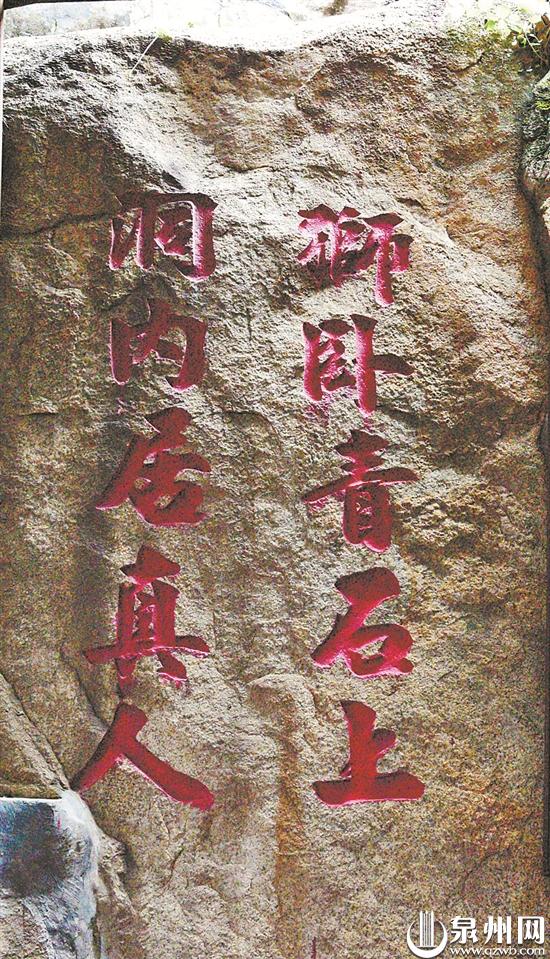 獅卧青石上
洞内居真人
泉州网
www.qzwb.com